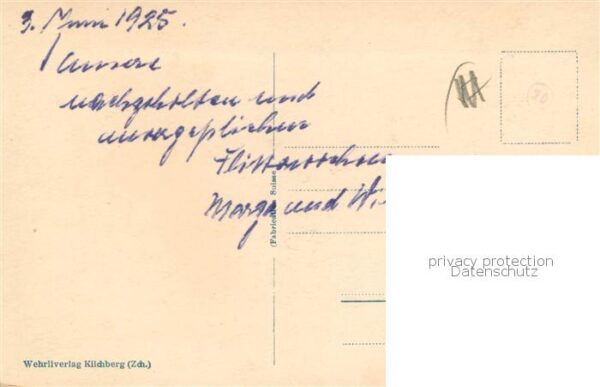 3. Juni 1925.
Unsere
nachgeholten und
unvergesslichen
Flitterwochen
Marga und Wi
(Fabrication Suisse)
20
privacy protection
Datenschutz
Wehrliverlag Kilchberg (Zch.)